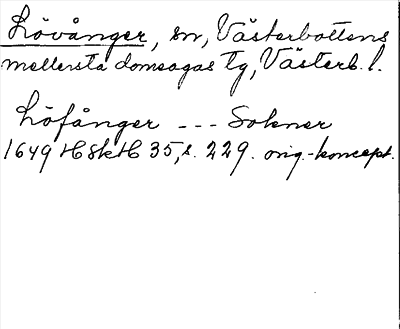 Lövånger, sn, Västerbottens
mellersta domsagas tg, Västerb. l.
Löfånger --- Sokner
1649 HSkH 35, s. 229. orig.-koncept.